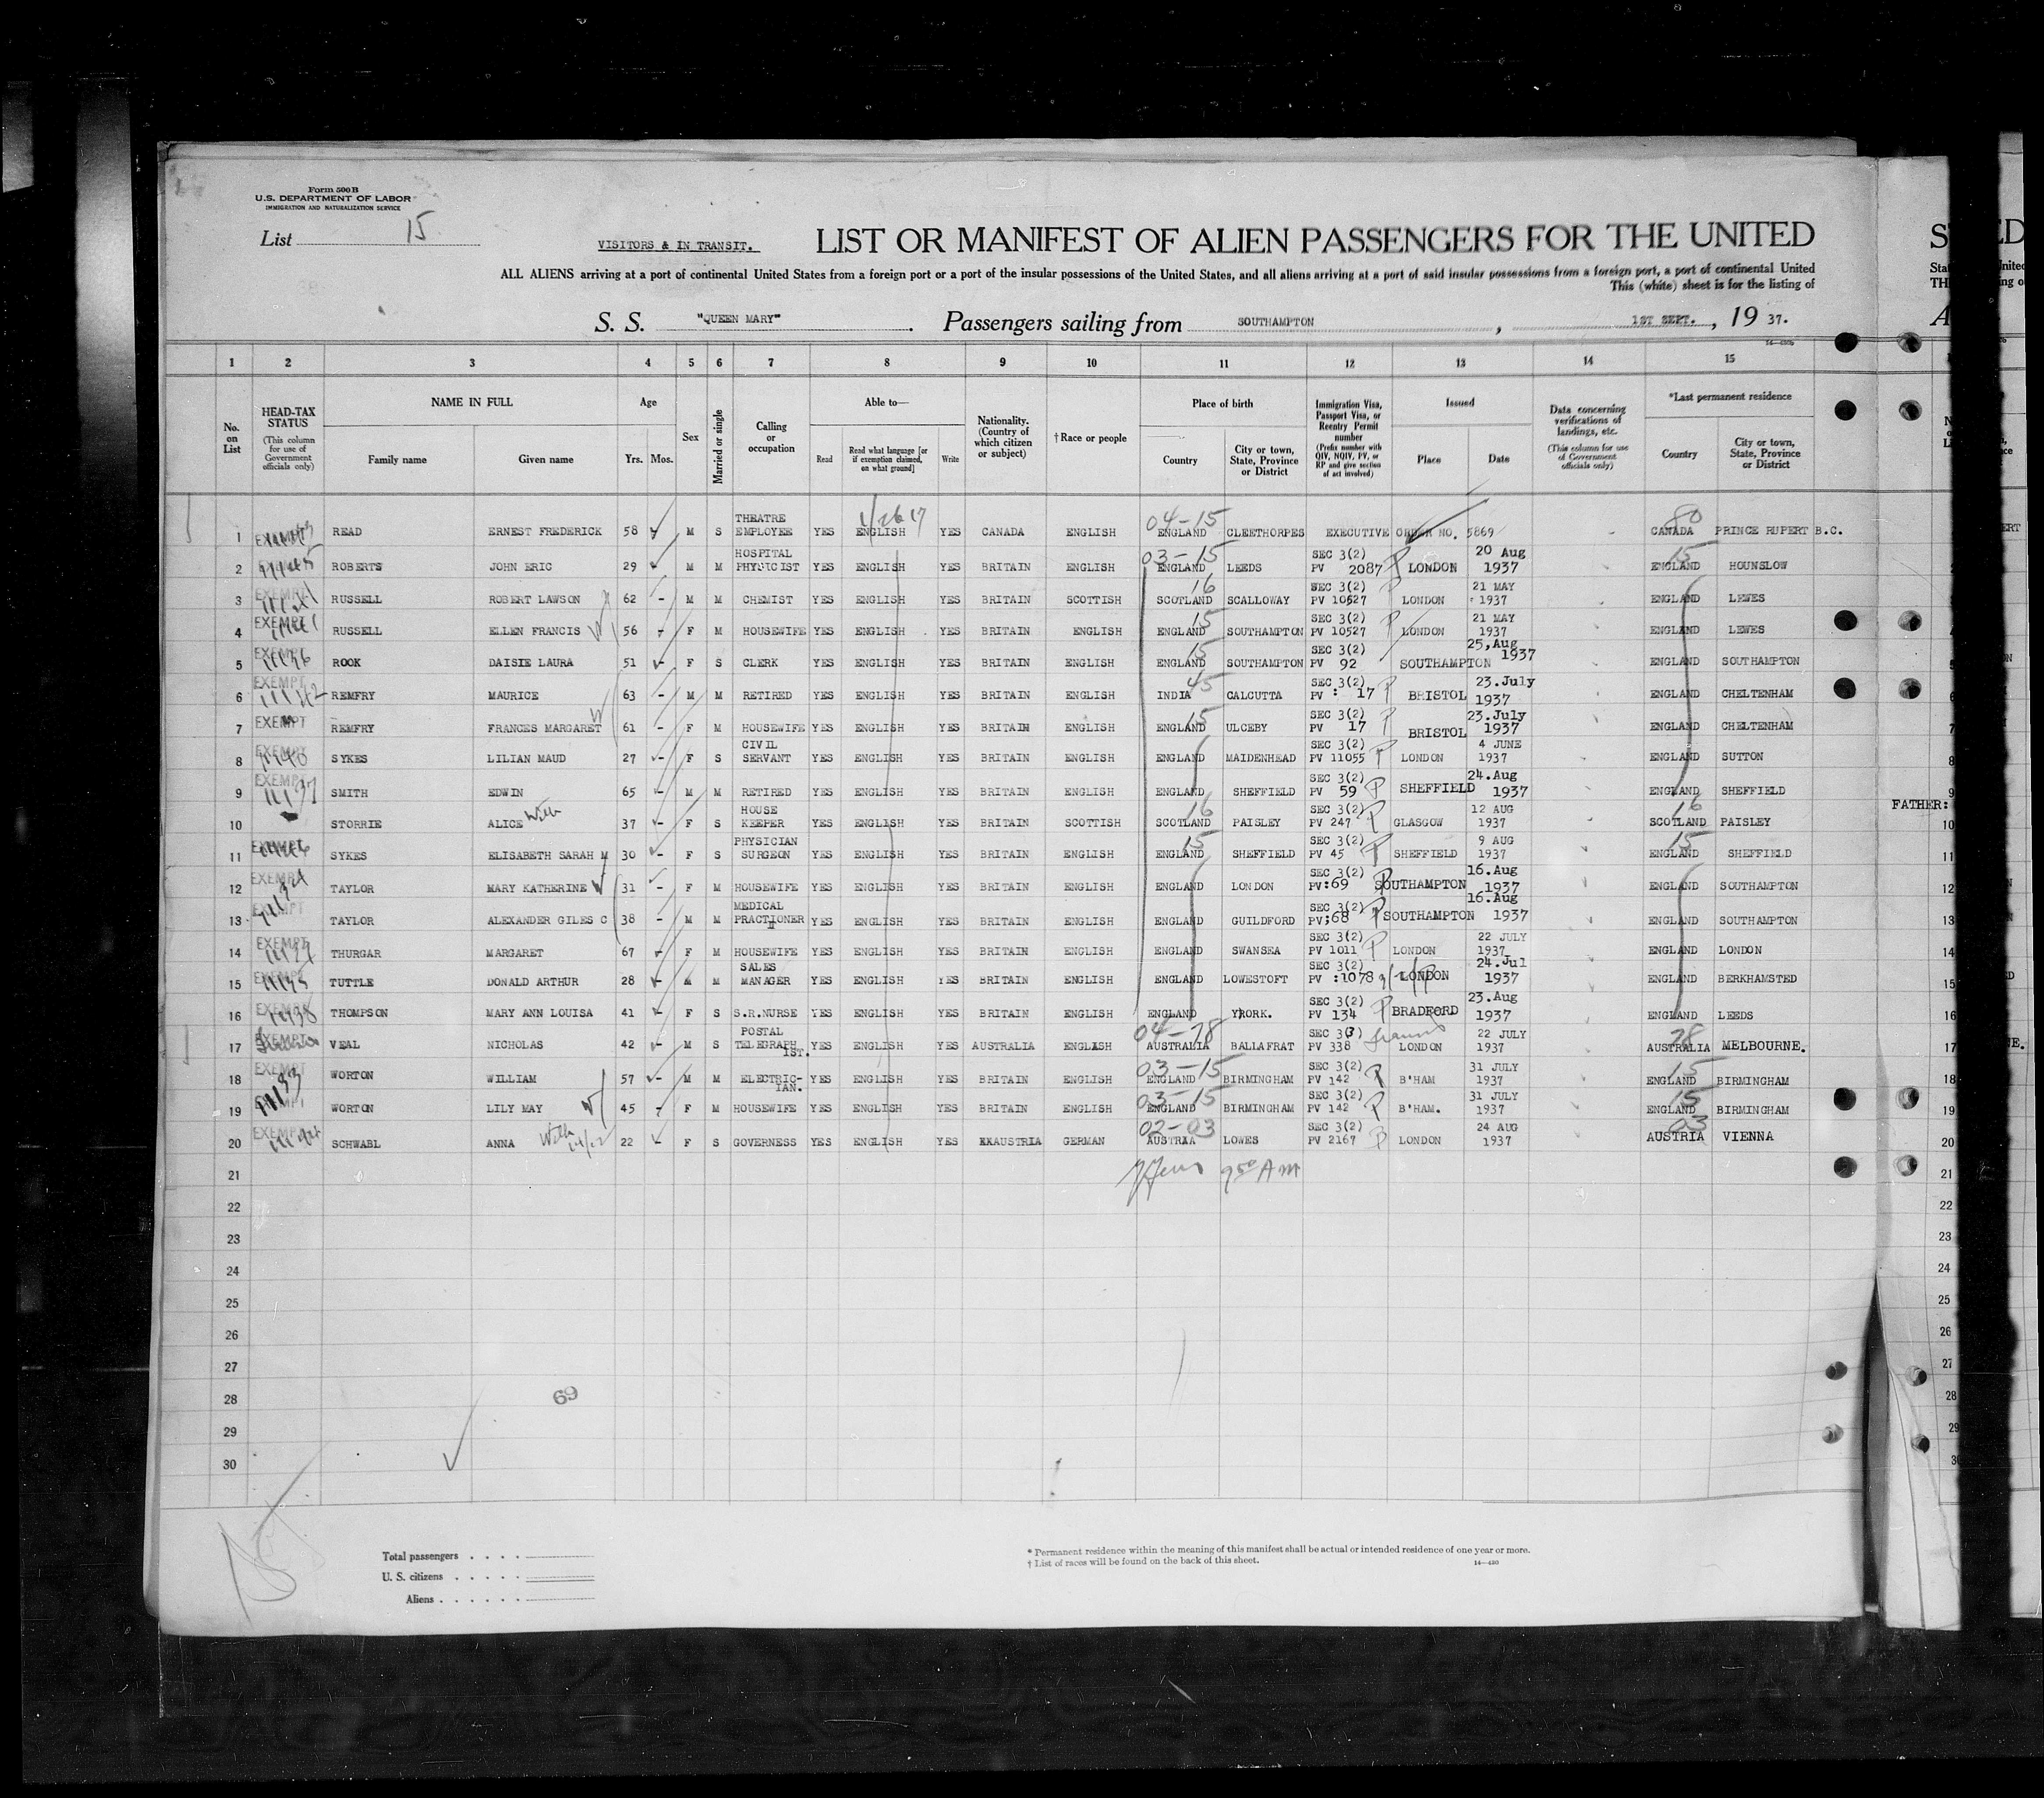 Form 500 B
U.S. DEPARTMENT OF LABOR
IMMIGRATION AND NATURALIZATION SERVICE
List 15
VISITORS & IN TRANSIT. LIST OR MANIFEST OF ALIEN PASSENGERS FOR THE UNITED
ALL ALIENS arriving at a port of continental United States from a foreign port or a port of the insular possessions of the United States, and all aliens arriving at a port of said insular possessions from a foreign port, a port of continental United
This (white) sheet is for the listing of
S. S. "QUEEN MARY" Passengers sailing from SOUTHAMPTON, 1ST SEPT., 19 37.
1 2 3 4 5 6 7 8 9 10 11 12 13 14 15
No. on List
HEAD-TAX STATUS (This column for use of Government officials only)
NAME IN FULL
Family name Given name
Age
Yrs. Mos.
Sex
Married or single
Calling or occupation
Able to—
Read Read what language [or if exemption claimed, on what ground] Write
Nationality. (Country of which citizen or subject)
†Race or people
Place of birth
Country City or town, State, Province or District
Immigration Visa, Passport Visa, or Reentry Permit number (Prefix number with QIV, NQIV, PV, or RP and give section of act involved)
Issued
Place Date
Data concerning verifications of landings, etc. (This column for use of Government officials only)
*Last permanent residence
Country City or town, State, Province or District
1 READ ERNEST FREDERICK 58 M S THEATRE EMPLOYEE YES ENGLISH YES CANADA ENGLISH 04-15 ENGLAND CLEETHORPES EXECUTIVE ORDER NO. 5869 80 CANADA PRINCE RUPERT B.C.
2 ROBERTS JOHN ERIC 29 M M HOSPITAL PHYSICIST YES ENGLISH YES BRITAIN ENGLISH 03-15 ENGLAND LEEDS SEC 3(2) PV 2087 P LONDON 20 Aug 1937 15 ENGLAND HOUNSLOW
3 EXEMPT RUSSELL ROBERT LAWSON 62 - M M CHEMIST YES ENGLISH YES BRITAIN SCOTTISH 16 SCOTLAND SCALLOWAY SEC 3(2) PV 10527 P LONDON 21 MAY 1937 ENGLAND LEWES
4 EXEMPT RUSSELL ELLEN FRANCIS 56 - F M HOUSEWIFE YES ENGLISH YES BRITAIN ENGLISH 15 ENGLAND SOUTHAMPTON SEC 3(2) PV 10527 P LONDON 21 MAY 1937 ENGLAND LEWES
5 EXEMPT ROOK DAISIE LAURA 51 - F S CLERK YES ENGLISH YES BRITAIN ENGLISH 15 ENGLAND SOUTHAMPTON SEC 3(2) PV 92 SOUTHAMPTON 25, Aug 1937 ENGLAND SOUTHAMPTON
6 EXEMPT REMFRY MAURICE 63 - M M RETIRED YES ENGLISH YES BRITAIN ENGLISH 45 INDIA CALCUTTA SEC 3(2) PV : 17 P BRISTOL 23.July 1937 ENGLAND CHELTENHAM
7 EXEMPT REMFRY FRANCES MARGARET 61 - F M HOUSEWIFE YES ENGLISH YES BRITAIN ENGLISH 15 ENGLAND ULCEBY SEC 3(2) PV 17 P BRISTOL 23.July 1937 ENGLAND CHELTENHAM
8 EXEMPT SYKES LILIAN MAUD 27 - F S CIVIL SERVANT YES ENGLISH YES BRITAIN ENGLISH ENGLAND MAIDENHEAD SEC 3(2) PV 11055 P LONDON 4 JUNE 1937 ENGLAND SUTTON
9 EXEMPT SMITH EDWIN 65 - M M RETIRED YES ENGLISH YES BRITAIN ENGLISH ENGLAND SHEFFIELD SEC 3(2) PV 59 P SHEFFIELD 24.Aug 1937 ENGLAND SHEFFIELD
10 STORRIE ALICE With 37 - F S HOUSE KEEPER YES ENGLISH YES BRITAIN SCOTTISH 16 SCOTLAND PAISLEY SEC 3(2) PV 247 P GLASGOW 12 AUG 1937 16 SCOTLAND PAISLEY
11 EXEMPT SYKES ELISABETH SARAH M 30 - F S PHYSICIAN SURGEON YES ENGLISH YES BRITAIN ENGLISH 15 ENGLAND SHEFFIELD SEC 3(2) PV 45 P SHEFFIELD 9 AUG 1937 15 ENGLAND SHEFFIELD
12 EXEMPT TAYLOR MARY KATHERINE 31 - F M HOUSEWIFE YES ENGLISH YES BRITAIN ENGLISH ENGLAND LONDON SEC 3(2) PV:69 P SOUTHAMPTON 16.Aug 1937 ENGLAND SOUTHAMPTON
13 TAYLOR ALEXANDER GILES C 38 - M M MEDICAL PRACTIONER YES ENGLISH YES BRITAIN ENGLISH ENGLAND GUILDFORD SEC 3(2) PV;68 P SOUTHAMPTON 16.Aug 1937 ENGLAND SOUTHAMPTON
14 EXEMPT THURGAR MARGARET 67 F M HOUSEWIFE YES ENGLISH YES BRITAIN ENGLISH ENGLAND SWANSEA SEC 3(2) PV 1011 P LONDON 22 JULY 1937 ENGLAND LONDON
15 EXEMPT TUTTLE DONALD ARTHUR 28 - M M SALES MANAGER YES ENGLISH YES BRITAIN ENGLISH ENGLAND LOWESTOFT SEC 3(2) PV :1078 LONDON 24.Jul 1937 ENGLAND BERKHAMSTED
16 THOMPSON MARY ANN LOUISA 41 - F S S.R.NURSE YES ENGLISH YES BRITAIN ENGLISH ENGLAND YORK. SEC 3(2) PV 134 P BRADFORD 23.Aug 1937 ENGLAND LEEDS
17 EXEMPT VEAL NICHOLAS 42 - M S POSTAL TELEGRAPH IST. YES ENGLISH YES AUSTRALIA ENGLISH 04-78 AUSTRALIA BALLAFRAT SEC 3(3) PV 338 LONDON 22 JULY 1937 78 AUSTRALIA MELBOURNE.
18 EXEMPT WORTON WILLIAM 57 - M M ELECTRIC-IAN. YES ENGLISH YES BRITAIN ENGLISH 03-15 ENGLAND BIRMINGHAM SEC 3(2) PV 142 P B'HAM 31 JULY 1937 15 ENGLAND BIRMINGHAM
19 WORTON LILY MAY 45 - F M HOUSEWIFE YES ENGLISH YES BRITAIN ENGLISH 03-15 ENGLAND BIRMINGHAM SEC 3(2) PV 142 P B'HAM. 31 JULY 1937 15 ENGLAND BIRMINGHAM
20 EXEMPT SCHWABL ANNA With 22 - F S GOVERNESS YES ENGLISH YES AUSTRIA GERMAN 02-03 AUSTRIA LOWES SEC 3(2) PV 2167 P LONDON 24 AUG 1937 03 AUSTRIA VIENNA
21 9 50 AM
22
23
24
25
26
27
28 69
29
30
FATHER:
Total passengers
U. S. citizens
Aliens
* Permanent residence within the meaning of this manifest shall be actual or intended residence of one year or more.
† List of races will be found on the back of this sheet.
14—430